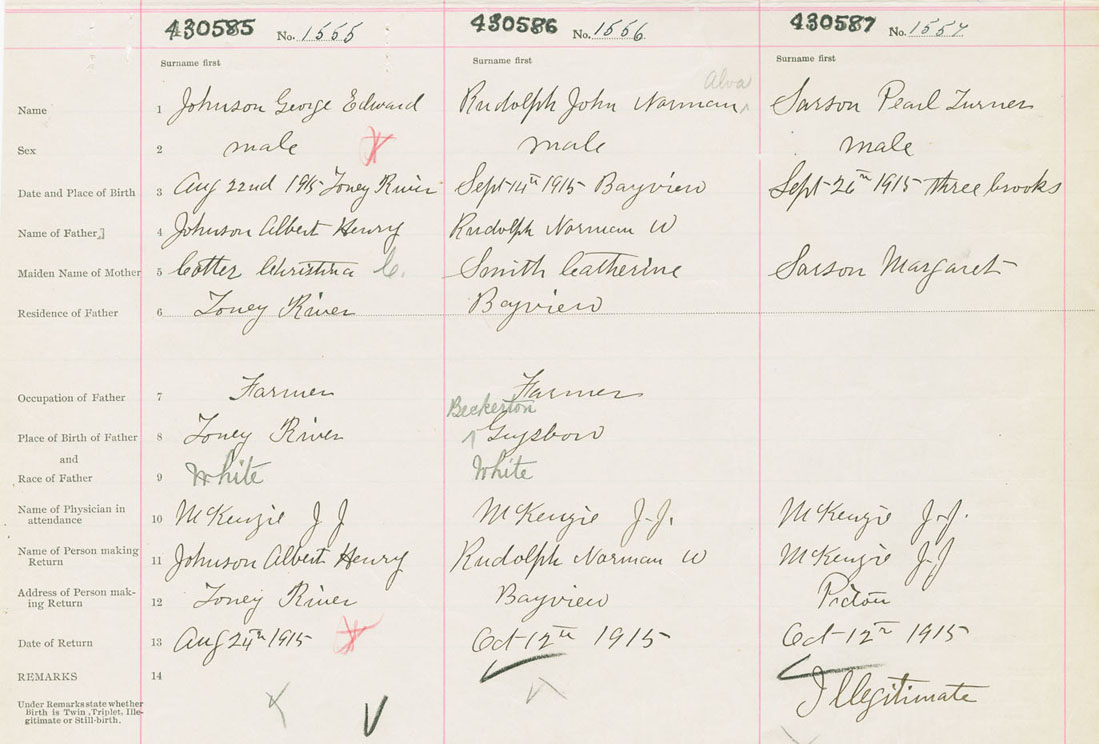 430585 No. 1555 430586 No. 1556. 430587 No. 1557
Surname first Surname first Surname first
Alva
Name 1 Johnson George Edward Rudolph John Norman ^ Sarson Pearl Turner
Sex 2 male male male
Date and Place of Birth 3 Aug 22nd 1915 Toney River Sept 14th 1915 Bayview Sept 26th 1915 three brooks
Name of Father 4 Johnson Albert Henry Rudolph Norman W
Maiden Name of Mother 5 Cotter Christina C. Smith Catherine Sarson Margaret
Residence of Father 6 Toney River Bayview
Occupation of Father 7 Farmer Farmer
Beckerton
Place of Birth of Father 8 Toney River ^ Guysboro
and
Race of Father 9 White White
Name of Physician in
attendance 10 McKenzie J J McKenzie J.J. McKenzie J.J.
Name of Person making
Return 11 Johnson Albert Henry Rudolph Norman W McKenzie J J
Address of Person mak-
ing Return 12 Toney River Bayview Pictou
Date of Return 13 Aug 24th 1915 Oct 12th 1915 Oct 12th 1915
REMARKS 14
Illegitimate
Under Remarks state whether
Birth is Twin, Triplet, Ille-
gitimate or Still-birth.